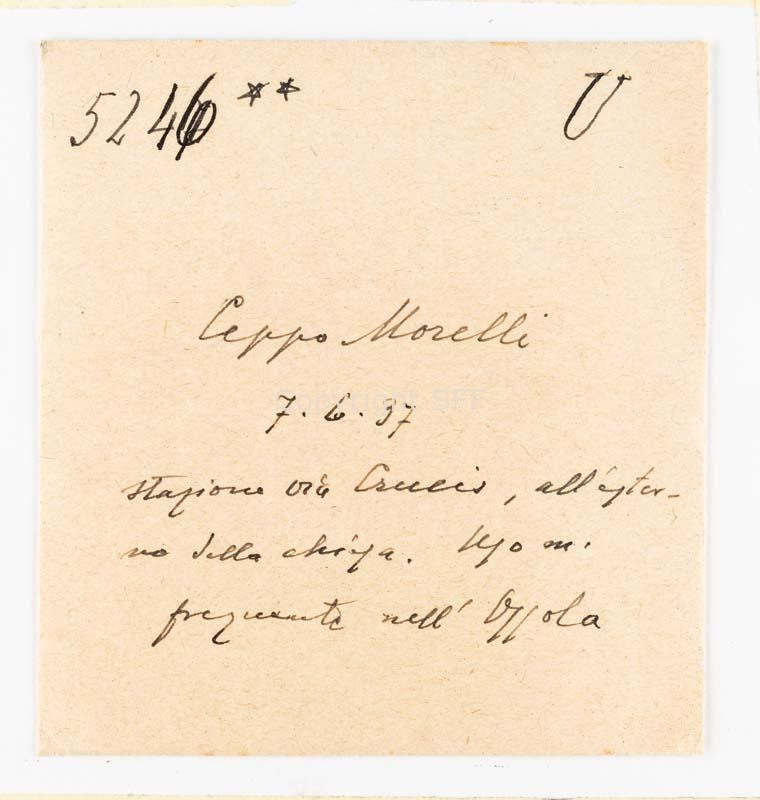 5246 ** U
Ceppo Morelli
7.6.37
stazione via Crucis, all'ester-
no della chiesa. Uso m.
frequente nell'Ossola